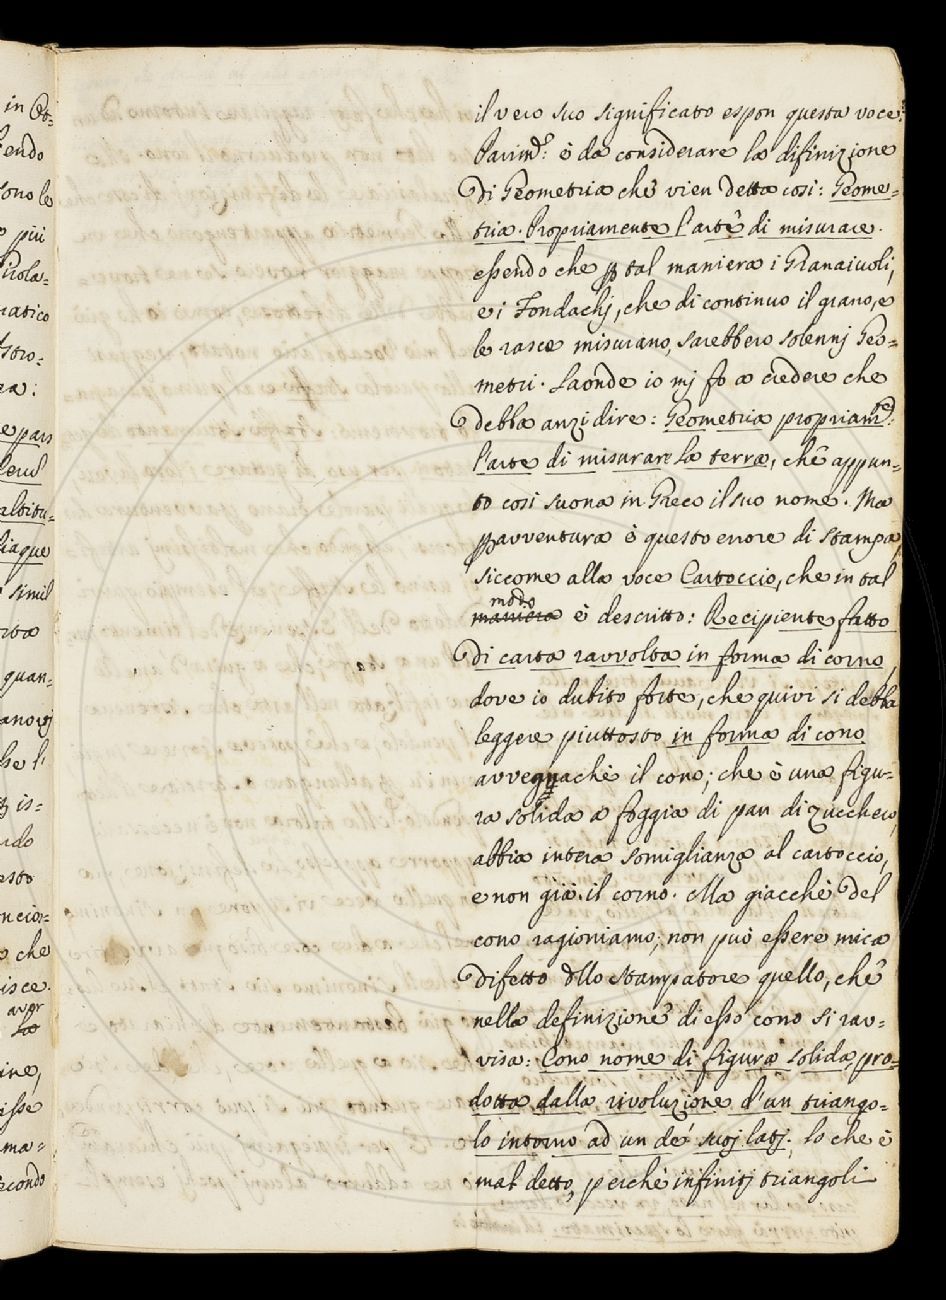 in Ot=
endo
sono le
più
pirola=
ratico
Astro=
ra:
e pars
altitu=
iaque
simil
quan=
se l'
is=
esto
ncior=
che
isce.
aver
ine,
isse
ma=
econdo
il vero suo significato espon questa voce:
Parimd.e: è da considerare la difinizione
di Geometria che vien detta cosi: Geome=
tria. Propriamente l'arte di misurare.
essendo che p tal maniera i Granaiuoli,
e i Fondachj, che di continuo il grano, e
le rasce misurano, sarebbero solennj Geo=
metri. Laonde io mj fo a credere che
debba anzi dire: Geometria propriamte:
l'arte di misurare la terra, che appun=
to cosi suona in Greco il suo nome. Ma
pavventura è questo errore di stampa,
siccome alla voce Cartoccio, che in tal
modo
maniera è descritto: Recipiente fatto
di carta ravvolta in forma di corno,
dove io dubito forte, che quivi si debba
leggere piuttosto in forma di cono
avvegnachè il cono; che è una figu=
ra solida a foggia di pan di zucchero,
abbia intera somiglianza al cartoccio,
e non già il corno. Ma giacchè del
cono ragioniamo; non può essere mica
difetto dllo stampatore quello, che
nella definizione di esso cono si rav=
visa: Cono nome di figura solida, pro=
dotta dalla rivoluzione d'un triango=
lo intorno ad un de' suoj latj; lo che è
mal detto, perchè infinitj triangoli